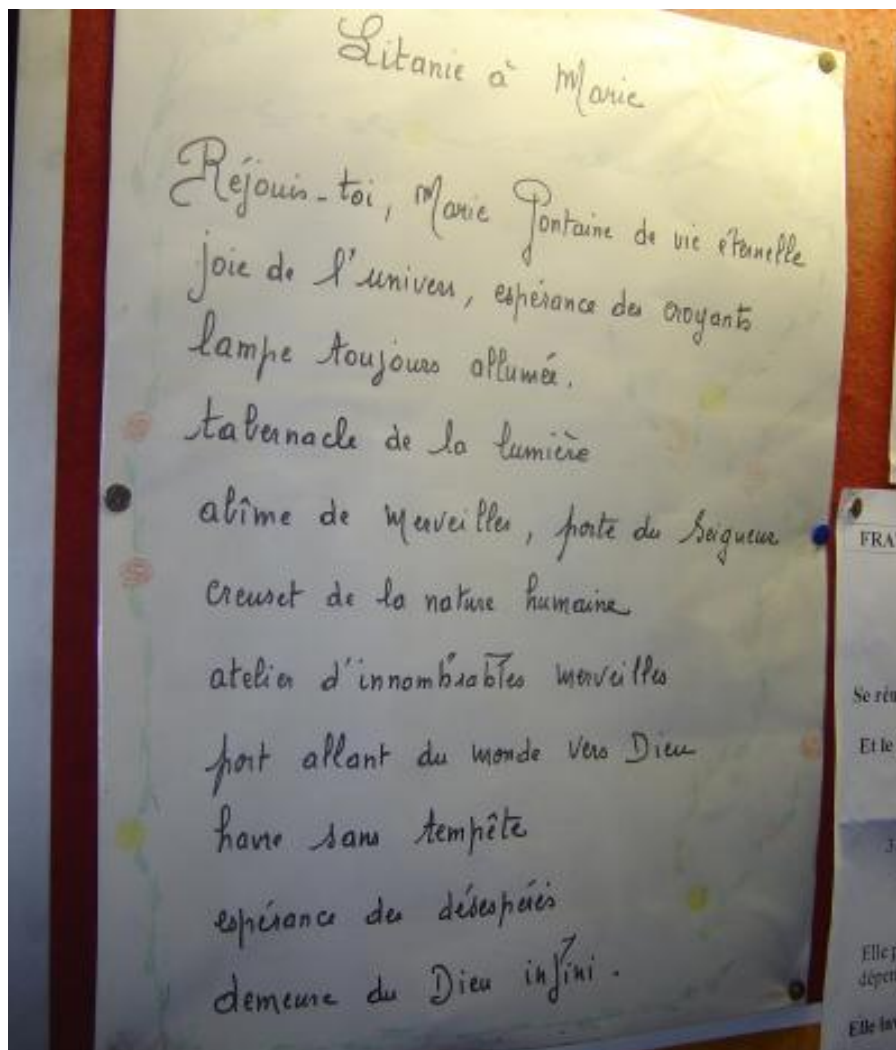 Litanie à Marie
Réjouis-toi, Marie Fontaine de vie éternelle
joie de l'univers, espérance des croyants
lampe toujours allumée.
tabernacle de la lumière
abîme de merveilles, porte du Seigneur
creuset de la nature humaine
atelier d'innombrables merveilles
port allant du monde vers Dieu
havre sans tempête
espérance des désespérés
demeure du Dieu infini.
FRA
Se réu
Et le
3
Elle p
dépen
Elle